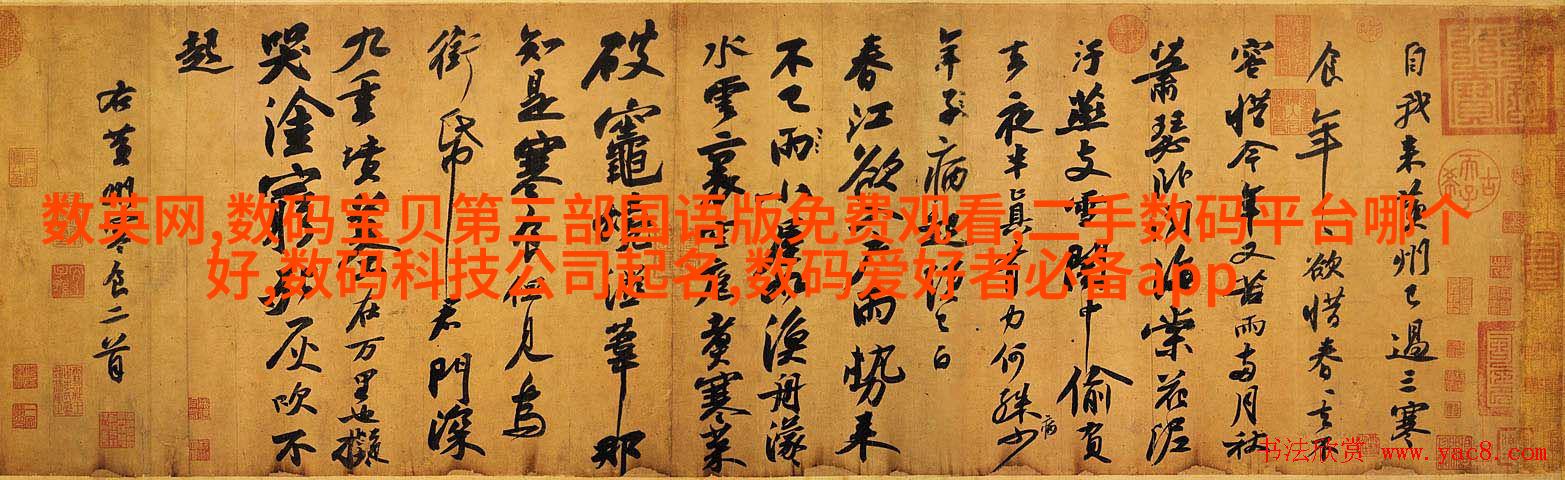 自我来黄州已過三寒
食年年欲惜春春去不
容惜今年又苦雨兩月秋
蕭瑟卧聞海棠花泥
汙燕支雪闇中偷負
去夜半真有力何殊少
病
年子病起頭已白
春江欲入户雨勢来
不已雨小屋如漁舟濛濛
水雲裏空庖煮寒菜
破竈燒濕葦那
知是寒食但見烏
銜帋君門深
九重墳墓在万里也擬
哭塗窮死灰吹不
起
右黄州寒食二首
数英网,数码宝贝第三部国语版免费观看,二手数码平台哪个
好,数码科技公司起名,数码爱好者必备app
书法欣赏 www.yac8.com